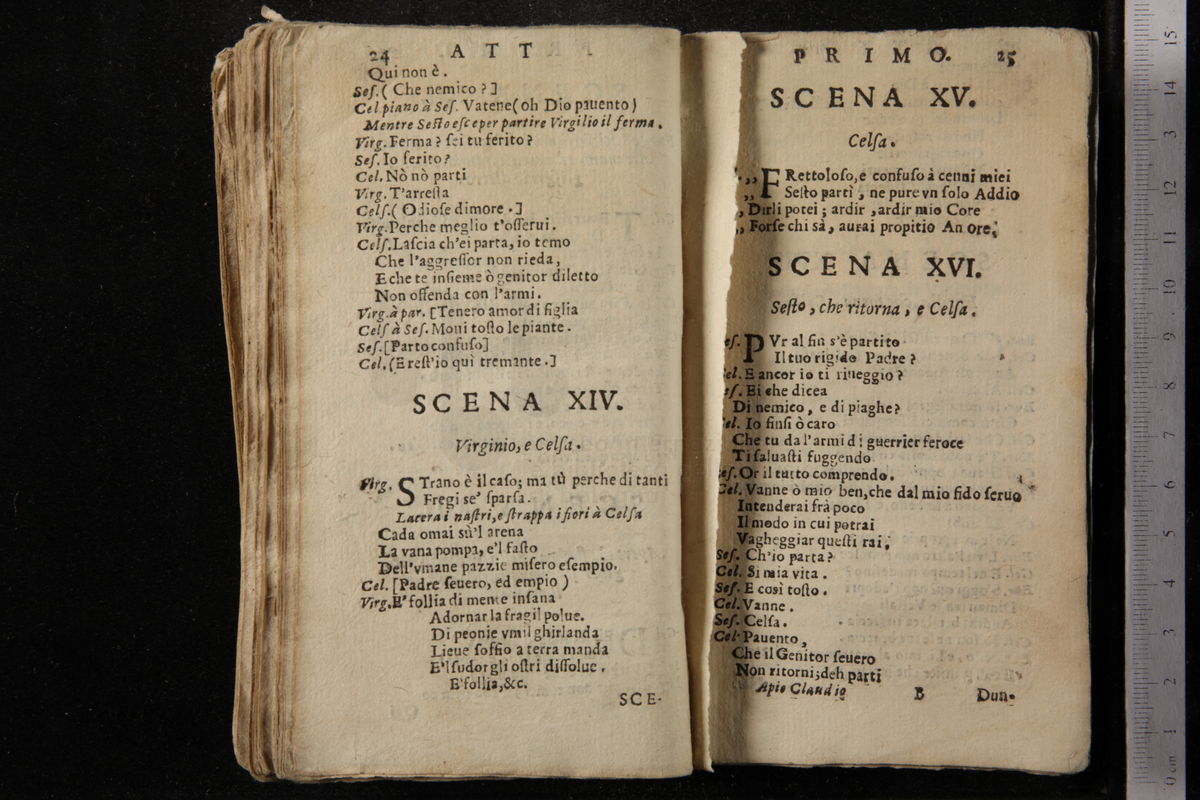 24 ATT
Qui non è.
Ses. ( Che nemico ? ]
Cel piano à Ses. Vatene ( oh Dio pauento )
Mentre Sesto esce per partire Virgilio il ferma.
Virg. Ferma ? sei tu ferito ?
Ses. Io ferito ?
Cel. Nò nò parti
Virg. T'arresta
Cels. ( Odiose dimore . ]
Virg. Perche meglio t'osserui.
Cels. Lascia ch'ei parta, io temo
Che l'aggressor non rieda,
E che te insieme ò genitor diletto
Non offenda con l'armi.
Virg. à par. [Tenero amor di figlia
Cels à Ses. Moui tosto le piante.
Ses. [Parto confuso]
Cel. (E rest'io quì tremante.]
SCENA XIV.
Virginio, e Celsa.
Virg. STrano è il caso; ma tù perche di tanti
Fregi se' sparsa.
Lacera i nastri, e strappa i fiori à Celsa
Cada omai sù'l arena
La vana pompa, e'l fasto
Dell'vmane pazzie misero esempio.
Cel. [Padre seuero, ed empio )
Virg. E' follia di mente insana
Adornar la fragil polue.
Di peonie vmil ghirlanda
Lieue soffio a terra manda
E'l sudor gli ostri dissolue.
E' follia, &c.
SCE-
PRIMO. 25
SCENA XV.
Celsa.
,, FRettoloso, e confuso à cenni miei
,, Sesto partì, ne pure vn solo Addio
, Dirli potei; ardir, ardir mio Core
,, Forse chi sà, aurai propitio Amore.
SCENA XVI.
Sesto, che ritorna, e Celsa.
es. PVr al fin s'è partito
Il tuo rigido Padre ?
el. E ancor io ti riueggio ?
es. Ei che dicea
Di nemico, e di piaghe ?
el. Io finsi ò caro
Che tu da l'armi di guerrier feroce
Ti saluasti fuggendo
es. Or il tutto comprendo.
Cel. Vanne ò mio ben, che dal mio fido seruo
Intenderai frà poco
Il modo in cui potrai
Vagheggiar questi rai;
Ses. Ch'io parta ?
Cel. Si mia vita.
Ses. E così tosto.
Cel. Vanne.
Ses. Celsa.
Cel. Pauento,
Che il Genitor seuero
Non ritorni; deh parti
Apio Claudio B Dun-